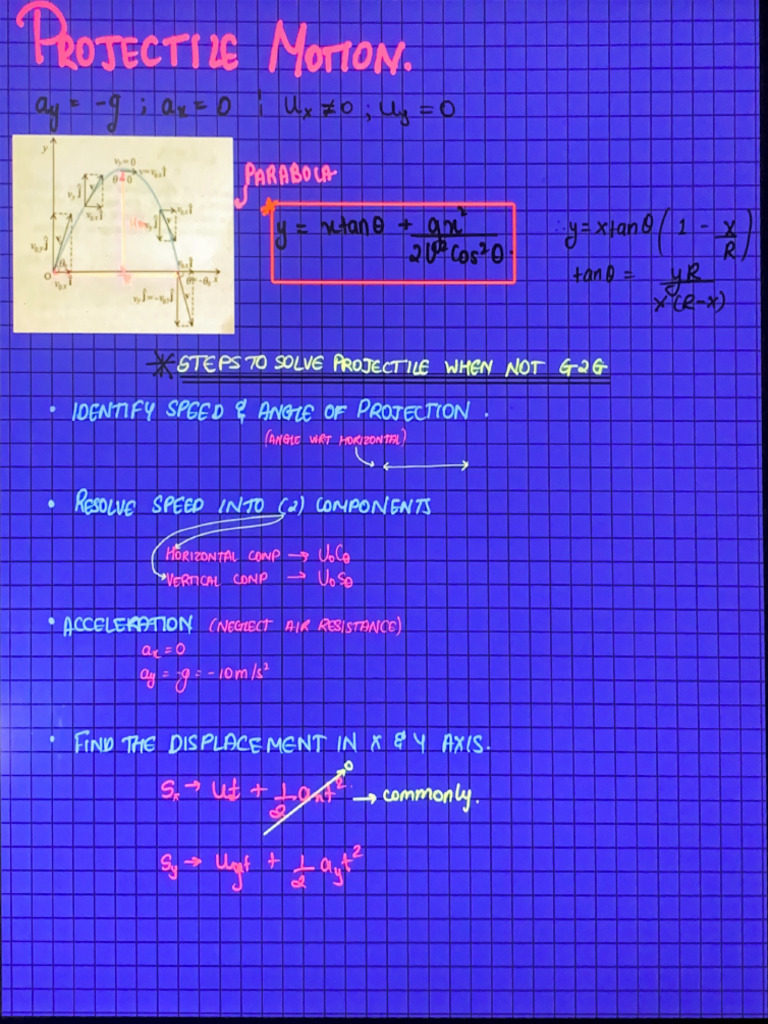 PROJECTILE MOTION.
ay = -g ; ax = 0 ; Ux ≠ 0 ; Uy = 0
PARABOLA
y = x tanθ + gx² / 2U² cos²θ
∴ y = x tanθ (1 - x/R)
tanθ = yR / x(R-x)
y
vy=0
θ=0
O
x
* STEPS TO SOLVE PROJECTILE WHEN NOT G2G
• IDENTIFY SPEED & ANGLE OF PROJECTION .
(ANGLE WRT HORIZONTAL)
• RESOLVE SPEED INTO (2) COMPONENTS
HORIZONTAL COMP → U₀Cθ
VERTICAL COMP → U₀Sθ
• ACCELERATION (NEGLECT AIR RESISTANCE)
ax = 0
ay = -g = -10m/s²
• FIND THE DISPLACEMENT IN X & Y AXIS.
Sx → Ut + 1/2 axt² 0 → commonly.
Sy → Uyt + 1/2 ayt²